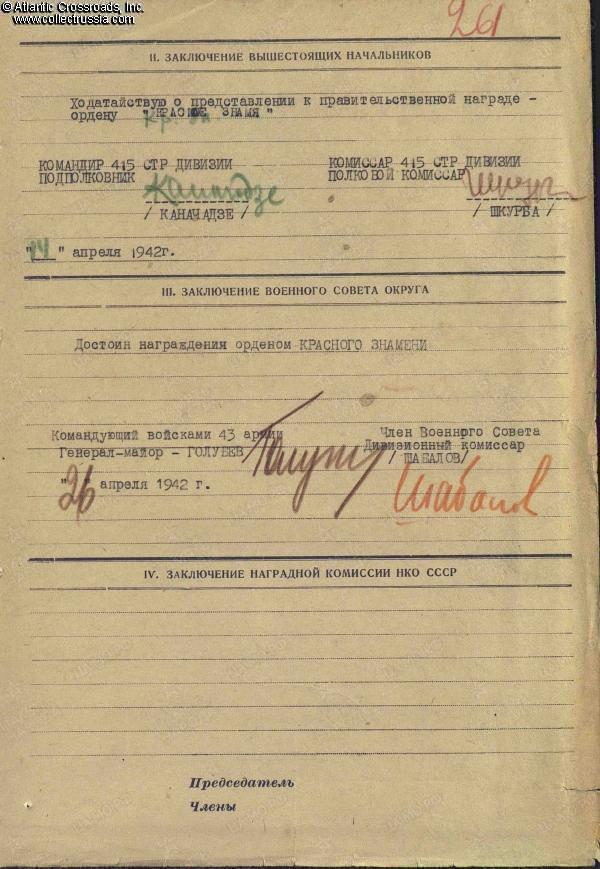 © Atlantic Crossroads, Inc.
www.collectrussia.com
261
II. ЗАКЛЮЧЕНИЕ ВЫШЕСТОЯЩИХ НАЧАЛЬНИКОВ
Ходатайствую о представлении к правительственной награде -
ордену "КРАСНОЕ ЗНАМЯ"
Кр. Зн
КОМАНДИР 415 СТР ДИВИЗИИ КОМИССАР 415 СТР ДИВИЗИИ
ПОДПОЛКОВНИК ПОЛКОВОЙ КОМИССАР
/ КАНАЧАДЗЕ / / ШКУРБА /
"14" апреля 1942г.
III. ЗАКЛЮЧЕНИЕ ВОЕННОГО СОВЕТА ОКРУГА
Достоин награждения орденом КРАСНОГО ЗНАМЕНИ
Командующий войсками 43 армии Член Военного Совета
Генерал-майор - ГОЛУБЕВ Дивизионный комиссар
/ШАБАЛОВ/
Шабалов
"26" апреля 1942 г.
IV. ЗАКЛЮЧЕНИЕ НАГРАДНОЙ КОМИССИИ НКО СССР
Председатель
Члены